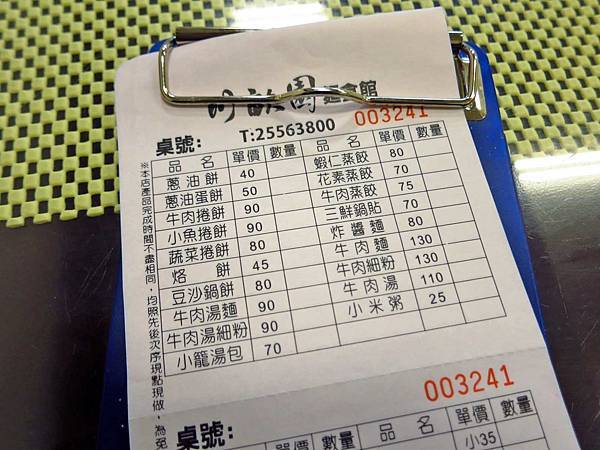 園
T:25563800 003241
桌號:
品名 單價 數量 品名 單價 數量
蔥油餅 40 蝦仁蒸餃 80
蔥油蛋餅 50 花素蒸餃 70
牛肉捲餅 90 牛肉蒸餃 75
小魚捲餅 90 三鮮鍋貼 70
蔬菜捲餅 80 炸醬麵 80
烙餅 45 牛肉麵 130
豆沙鍋餅 80 牛肉細粉 130
牛肉湯麵 90 牛肉湯 110
牛肉湯細粉 90 小米粥 25
小籠湯包 70
※本店產品完成時間不盡相同,均照先後次序現點現做,為免
003241
桌號:
品名 單價 數量 品名 單價 數量
小35